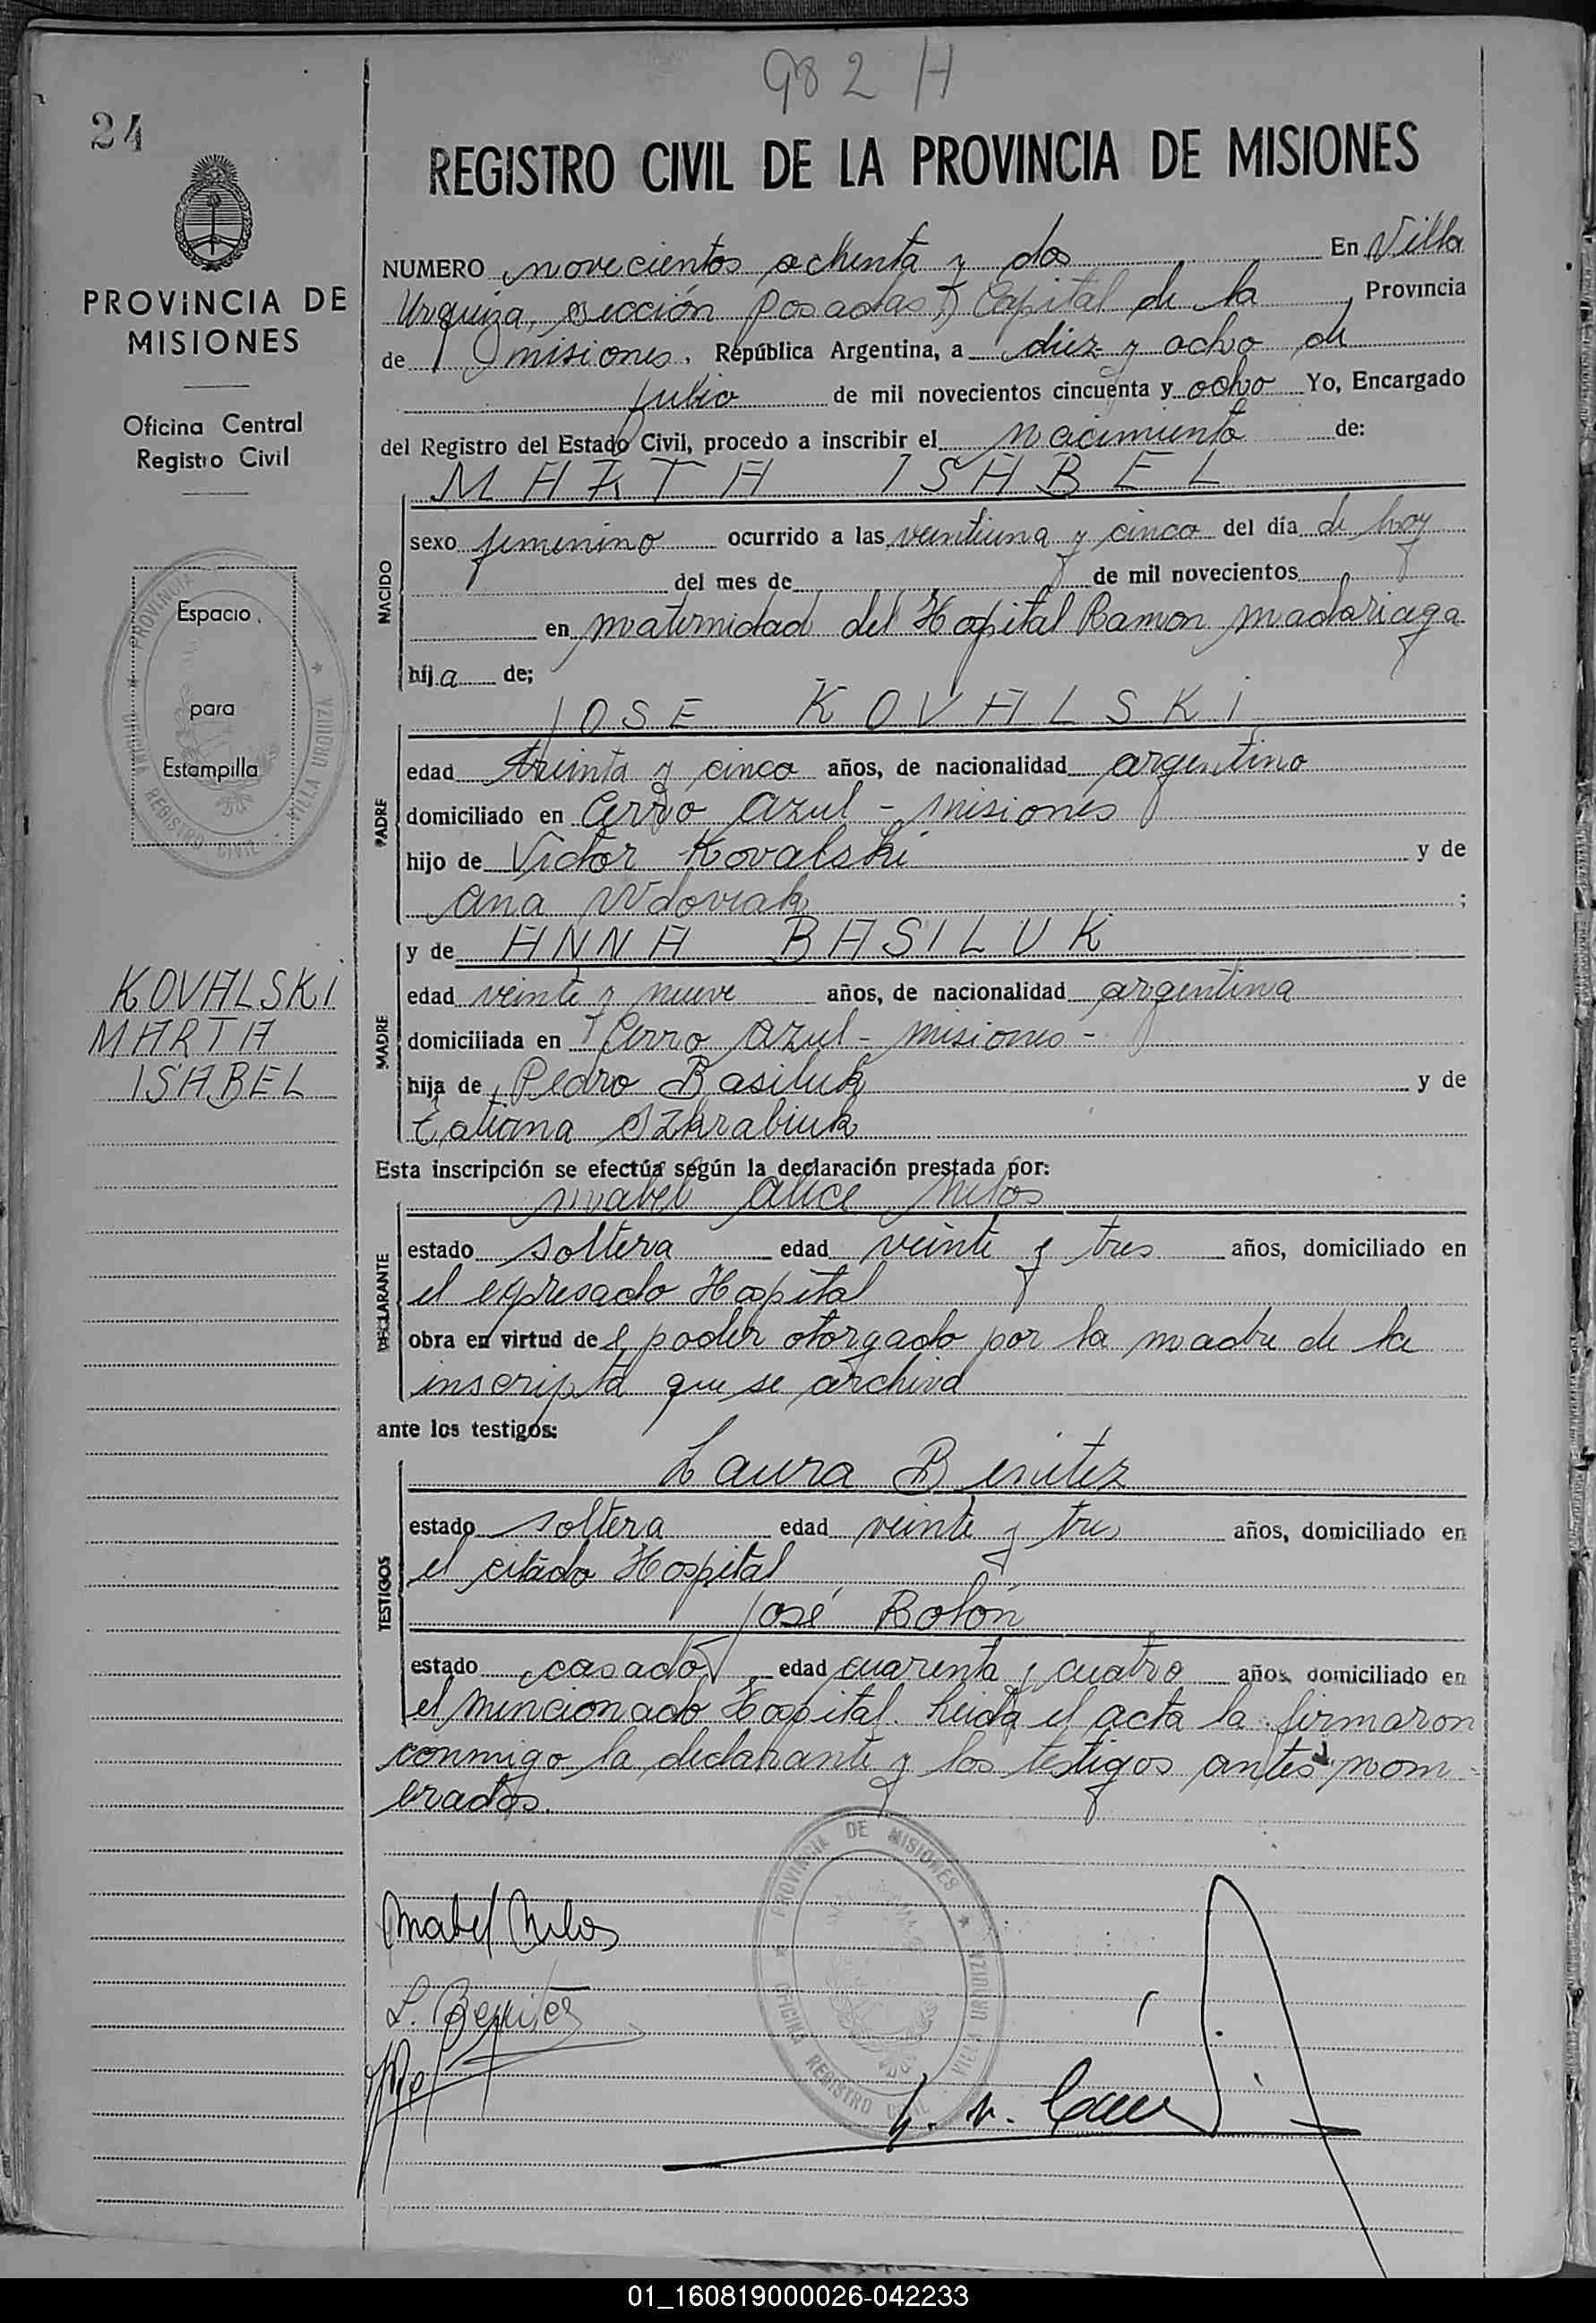 982 H
24
REGISTRO CIVIL DE LA PROVINCIA DE MISIONES
PROVINCIA DE
MISIONES
Oficina Central
Registro Civil
NUMERO novecientos ochenta y dos En Villa
Urquiza, sección Posadas, Capital de la Provincia
de Misiones. República Argentina, a diez y ocho de
Julio de mil novecientos cincuenta y ocho Yo, Encargado
del Registro del Estado Civil, procedo a inscribir el nacimiento de:
MARTA ISABEL
NACIDO
sexo femenino ocurrido a las veintiuna y cinco del día de hoy
del mes de de mil novecientos
en maternidad del Hospital Ramon Madariaga
hija de;
Espacio
para
Estampilla
PROVINCIA
OFICINA REGISTRO CIVIL - VILLA URQUIZA
JOSE KOVALSKI
PADRE
edad treinta y cinco años, de nacionalidad argentino
domiciliado en Cerro Azul - Misiones
hijo de Victor Kovalski y de
Ana Wdoviak ;
y de ANNA BASILUK
KOVALSKI
MARTA
ISABEL
MADRE
edad veinte y nueve años, de nacionalidad argentina
domiciliada en Cerro Azul - Misiones -
hija de Pedro Basiluk y de
Tatiana Szkrabiuk
Esta inscripción se efectúa según la declaración prestada por:
Mabel Alice Milos
DECLARANTE
estado soltera edad veinte y tres años, domiciliado en
el expresado Hospital
obra en virtud del poder otorgado por la madre de la
inscripta que se archiva
ante los testigos:
Laura Benitez
TESTIGOS
estado soltera edad veinte y tres años, domiciliado en
el citado Hospital
José Bolón
estado casado edad cuarenta y cuatro años, domiciliado en
el mencionado Hospital. Leida el acta la firmaron
conmigo la declarante y los testigos antes nom-
brados.
PROVINCIA DE MISIONES
OFICINA REGISTRO CIVIL VILLA URQUIZA
Mabel Milos
L. Benitez
01_160819000026-042233